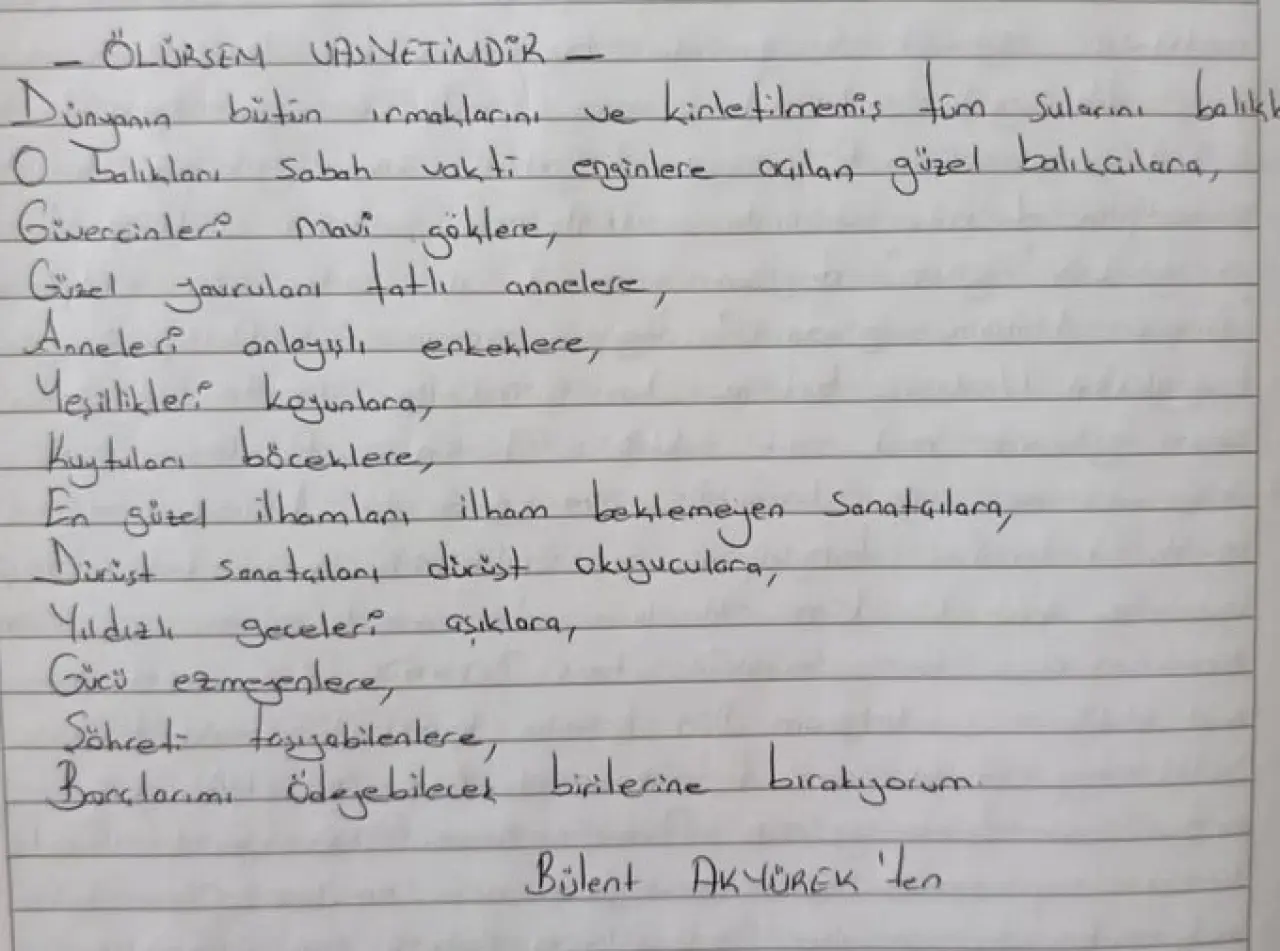 - ÖLÜRSEM VASİYETİMDİR -
Dünyanın bütün ırmaklarını ve kirletilmemiş tüm sularını
O balıkları sabah vakti enginlere açılan güzel balıkçılara,
Güvercinleri mavi göklere,
Güzel yavruları tatlı annelere,
Anneleri anlayışlı erkeklere,
Yeşillikleri koyunlara,
Kuytuları böceklere,
En güzel ilhamları ilham beklemeyen sanatçılara,
Dürüst sanatçıları dürüst okuyuculara,
Yıldızlı geceleri aşıklara,
Gücü ezmeyenlere,
Şöhreti taşıyabilenlere,
Borçlarımı ödeyebilecek birilerine bırakıyorum
Bülent AKYÜREK'ten